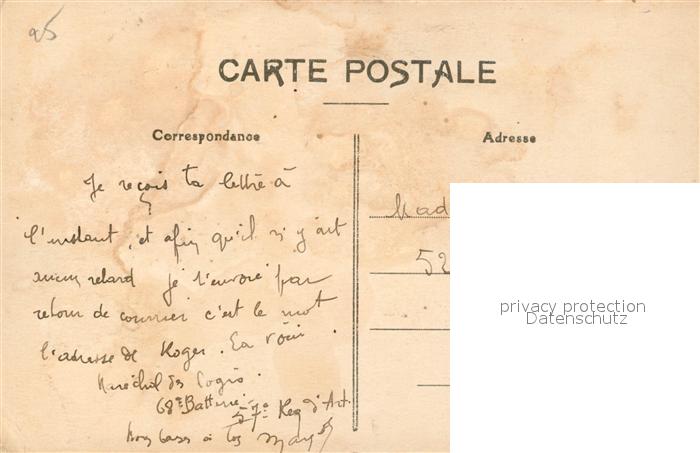 25
CARTE POSTALE
Correspondance
Adresse
Je reçois ta lettre à
l'instant, et afin qu'il n'y ait
aucun retard je t'envoie par
retour de courrier c'est le mot
l'adresse de Roger. La voici
Maréchal des Logis.
68e Batterie
57e Reg d'Art.
à tos
Mad
52
privacy protection
Datenschutz